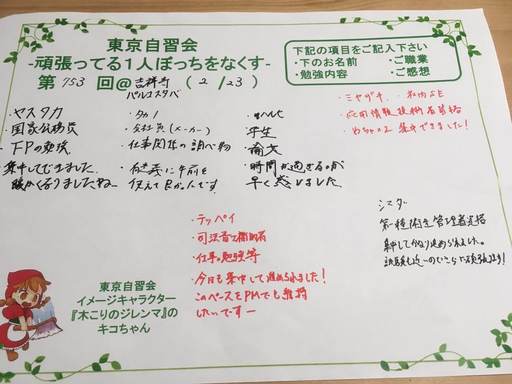 東京自習会
-頑張ってる１人ぼっちをなくす-
第 753 回@吉祥寺 ( 2/23 )
パルコスタバ
下記の項目をご記入下さい
・下のお名前 ・ご職業
・勉強内容 ・ご感想
・ヤスタカ
・国家公務員
・FPの勉強
・集中してできました。
暖かくなりましたね。
・タカノ
・会社員(メーカー)
・仕事関係の調べ物
・有意義に午前を
使えて良かったです。
・学生
・論文
・時間が過ぎるのが
早く感じました。
・ミヤザキ ・社内SE
・応用情報技術者資格
・めちゃくちゃ集中できました!
シマダ
第一種衛生管理者資格
集中してかなり進められました。
・テッペイ
・司法書士補助者
・仕事の勉強等
・今日も集中して進められました!
このペースをPMでも維持
したいですー
東京自習会
イメージキャラクター
『木こりのジレンマ』の
キコちゃん